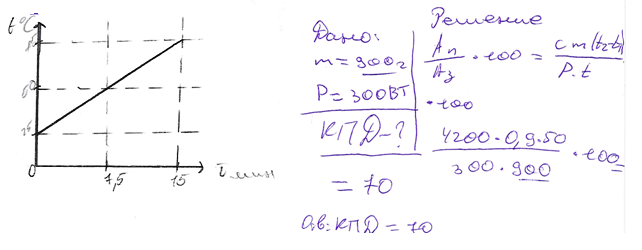 t°C
0
7,5
15
τ мин
Дано:
m = 900г
P = 300ВТ
КПД-?
Решение
Aп/Aз · 100 = cm(t₂-t₁)/P·t
· 100
4200·0,9·50/300·900 · 100 =
= 70
Отв: КПД = 70